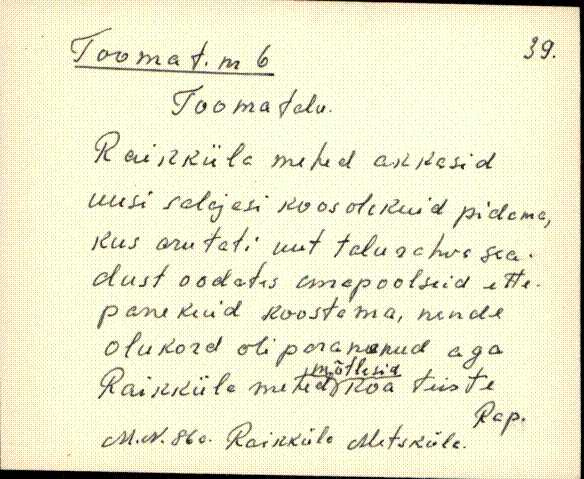 39.
Toomat. m 6
Toomatalu.
Raikküla mehed akkasid
uusi salajasi koosolekuid pidama,
kus arutati uut talurahva sea-
dust oodates omapoolseid ette-
panekuid koostama, nende
olukord oli paranenud aga
mõtlesid
Raikküla mehed koa teiste
Rap.
M.N. 86a. Raikküla Metsküla.